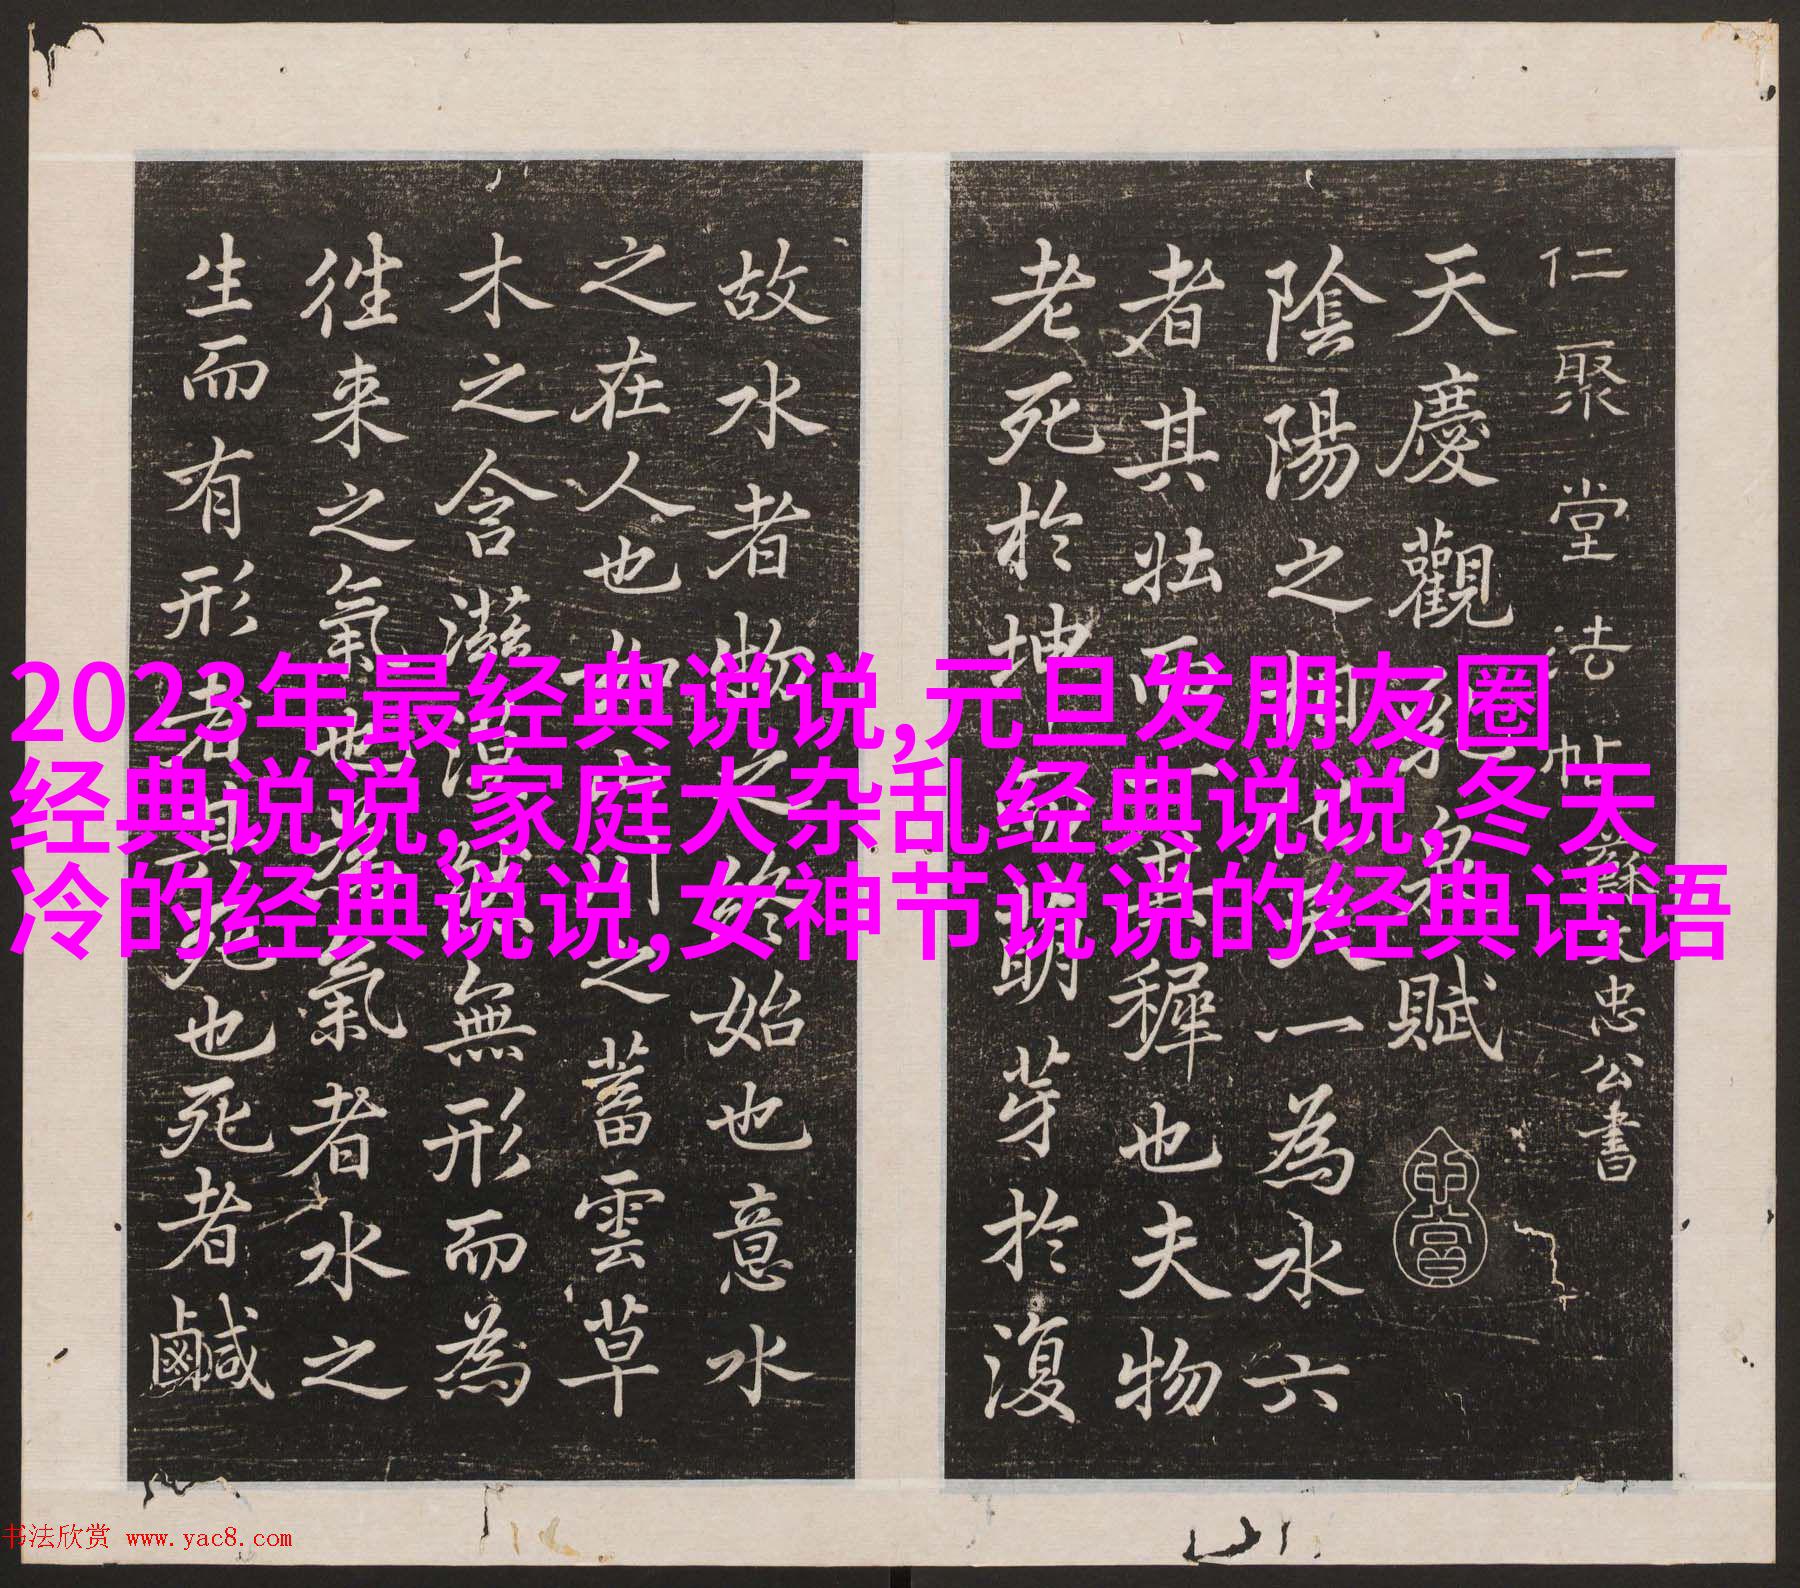 2023年最经典说说,元旦发朋友圈
经典说说,家庭大杂乱经典说说,冬天
冷的经典说说,女神节说说的经典话语
仁聚堂法帖蘇文忠公書
天慶觀泉賦
陰陽之相一為水六
者其壯而其穉也夫物
老死於坤萌芽於復
故水者物之終始也意水
之在人也如川之蓄雲草
木之含滋無形而為
徃来之氣也為氣者水之
生而有形者其死也死者鹹
书法欣赏 www.yac8.com